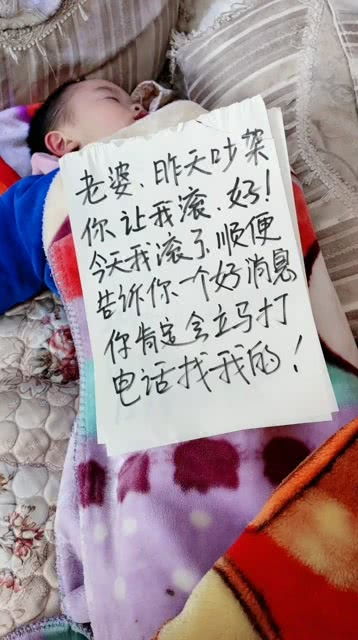 老婆、昨天吵架
你让我滚、好!
今天我滚了、顺便
告诉你一个好消息
你肯定会立马打
电话找我的!